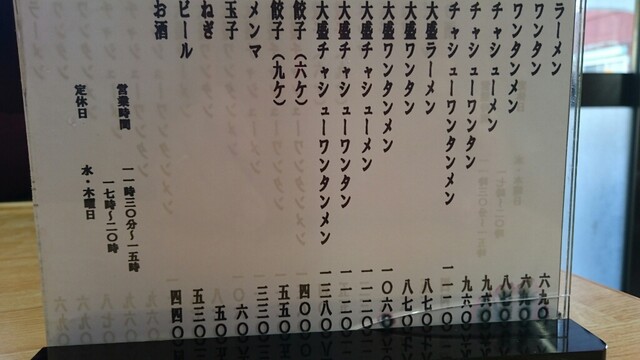 ラーメン 六九〇
ワンタン
ワンタンメン
チャシューメン 九六〇
チャシューワンタン 九六〇
チャシューワンタンメン 一一二〇
大盛ラーメン 八七〇
大盛ワンタン 八七〇
大盛ワンタンメン 一〇六〇
大盛チャシューメン 一一二〇
大盛チャシューワンタン 一一二〇
大盛チャシューワンタンメン 一三八〇
餃子（六ケ） 四〇〇
餃子（九ケ） 五五〇
メンマ 三三〇
玉子 六〇
ねぎ 五〇
ビール 五三〇
お酒 四四〇
営業時間 一一時三〇分〜一五時
一七時〜二〇時
定休日 水・木曜日